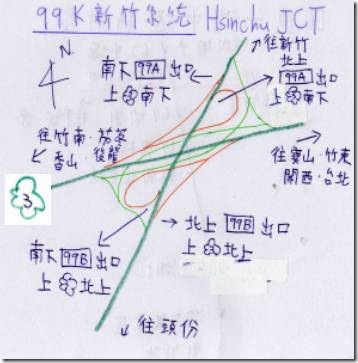 99K新竹系統 Hsinchu JCT
N
↗往新竹
南下 99A 出口
上 南下
北上
99A 出口
上 南下
往竹南·茄苳
↙ 香山·後龍
3
往寶山·竹東
關西·台北
→ 北上 99B 出口
上 北上
南下 99B 出口
上 北上
↓往頭份